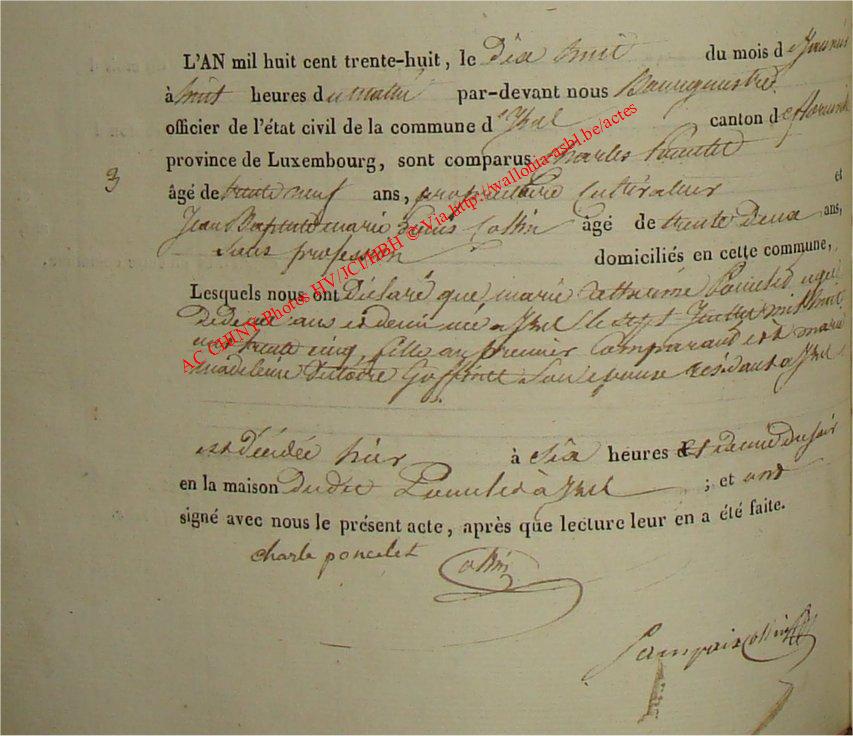 L'AN mil huit cent trente-huit, le dix huit du mois d
à huit heures du matin par-devant nous Bourgmestre
officier de l'état civil de la commune d'Izel canton de
province de Luxembourg, sont comparus Charles Poncelet
3
âgé de trente neuf ans, propriétaire Cultivateur et
Jean Baptiste marie Collin âgé de trente Deux ans,
sans profession domiciliés en cette commune,
Lesquels nous ont Déclaré que marie Catherine Poncelet agée
De deux ans et demi née a Izel le sept Juillet mil huit
cent trente cinq, fille au premier Comparant et à marie
madeleine Victoire Goffinet Son epouse résidant a Izel
est décédée hier à Six heures et demie du soir
en la maison dudit Poncelet à Izel ; et ont
signé avec nous le présent acte, après que lecture leur en a été faite.
charle poncelet
Collin
AC CHINY Photos HV/JCI/HBH © Via http://wallonia-asbl.be/actes